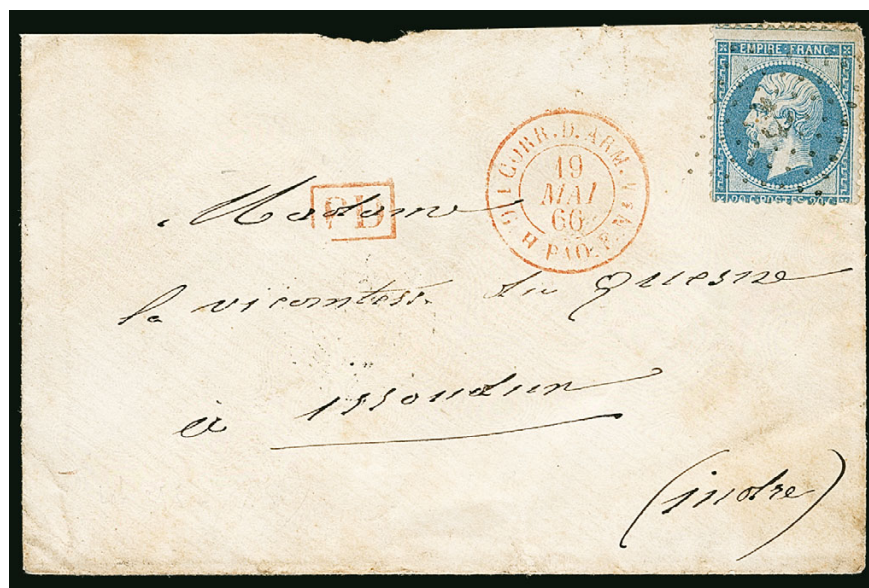 EMPIRE · FRANC
20 C · POSTES · 20 C
CORR. D. ARM.
19
MAI
66
G. H PAQ. F. N° 1
PD
Madame
la vicomtesse du Quesne
à issoudun
(indre)